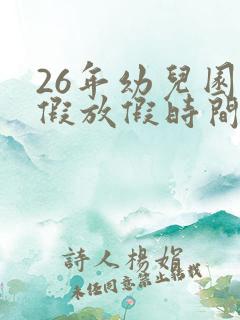 26年幼兒園
假放假時間
詩人楊娟
未经同意禁止转载